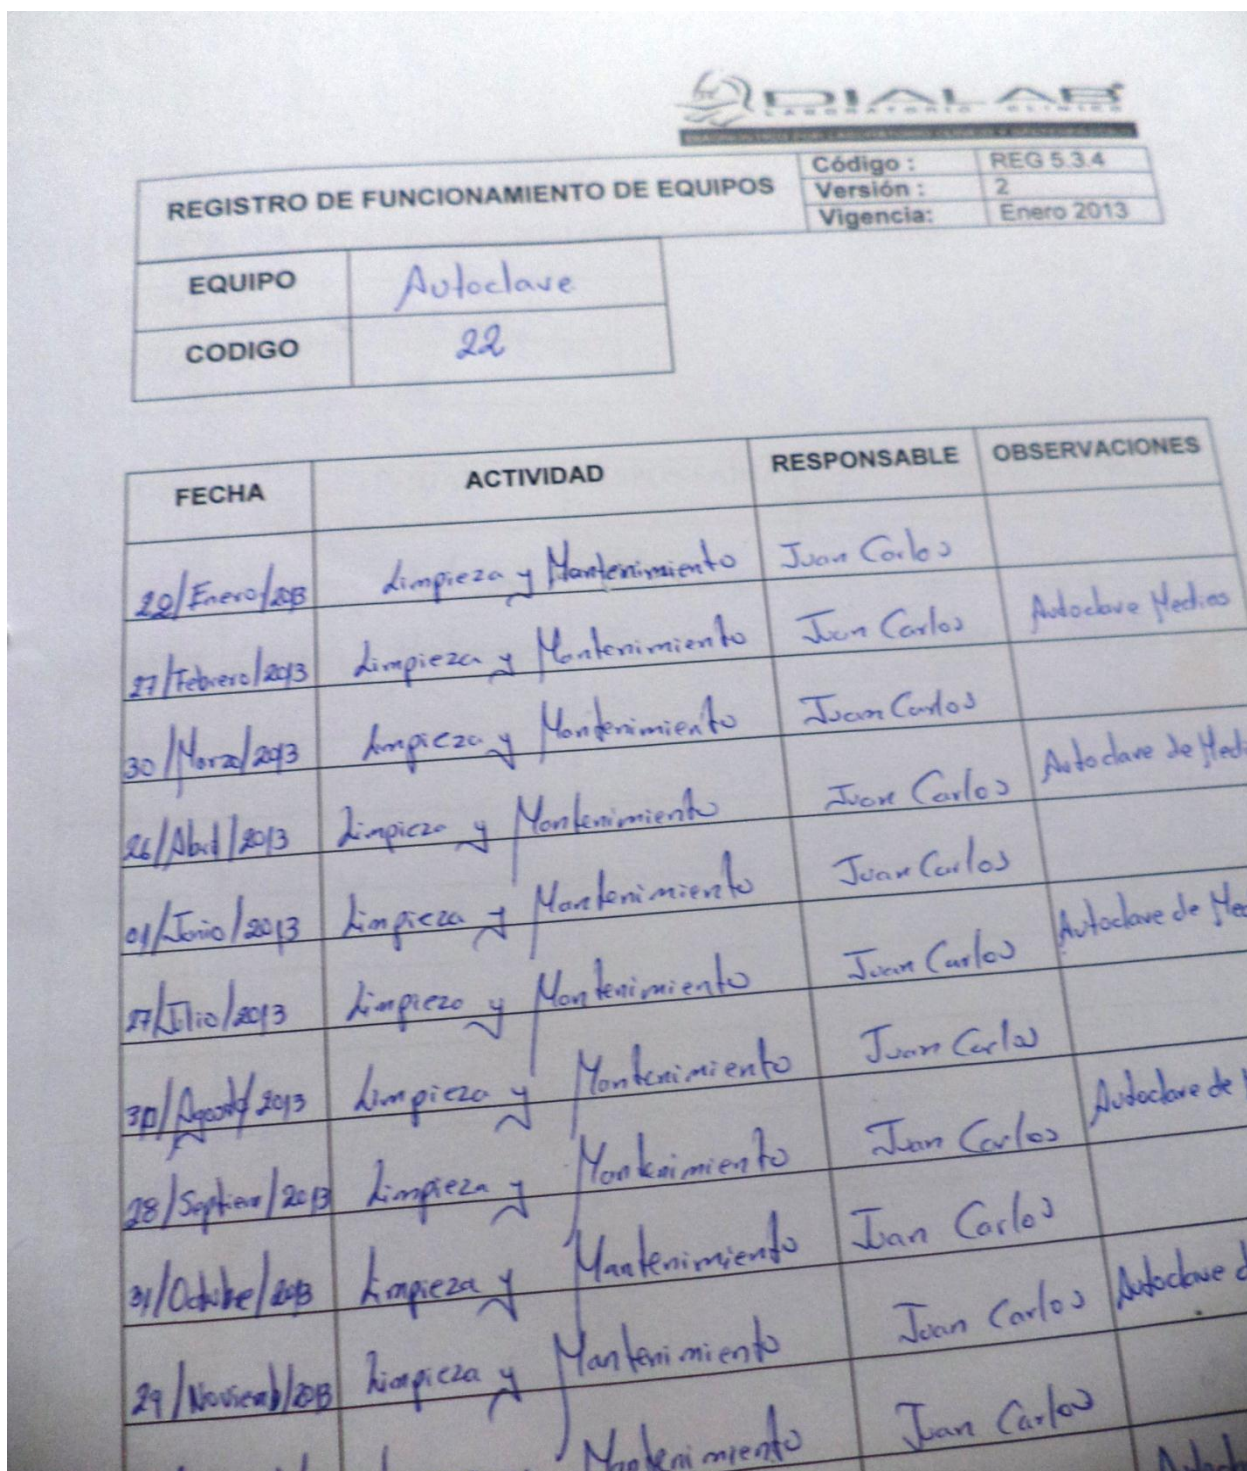 DIALAB
LABORATORIO CLINICO
REGISTRO DE FUNCIONAMIENTO DE EQUIPOS
Código : REG 5.3.4
Versión : 2
Vigencia: Enero 2013
EQUIPO Autoclave
CODIGO 22
FECHA ACTIVIDAD RESPONSABLE OBSERVACIONES
/Enero/2013 Limpieza y Mantenimiento Juan Carlos
27/Febrero/2013 Limpieza y Mantenimiento Juan Carlos Autoclave Medios
30/Marzo/2013 Limpieza y Mantenimiento Juan Carlos
26/Abril/2013 Limpieza y Mantenimiento Juan Carlos Autoclave de Medi
01/Junio/2013 Limpieza y Mantenimiento Juan Carlos
27/Julio/2013 Limpieza y Mantenimiento Juan Carlos Autoclave de Med
30/Agosto/2013 Limpieza y Mantenimiento Juan Carlos
28/Septiem/2013 Limpieza y Mantenimiento Juan Carlos Autoclave de
31/Octubre/2013 Limpieza y Mantenimiento Juan Carlos
29/Noviemb/2013 Limpieza y Mantenimiento Juan Carlos Autoclave d
Mantenimiento Juan Carlos